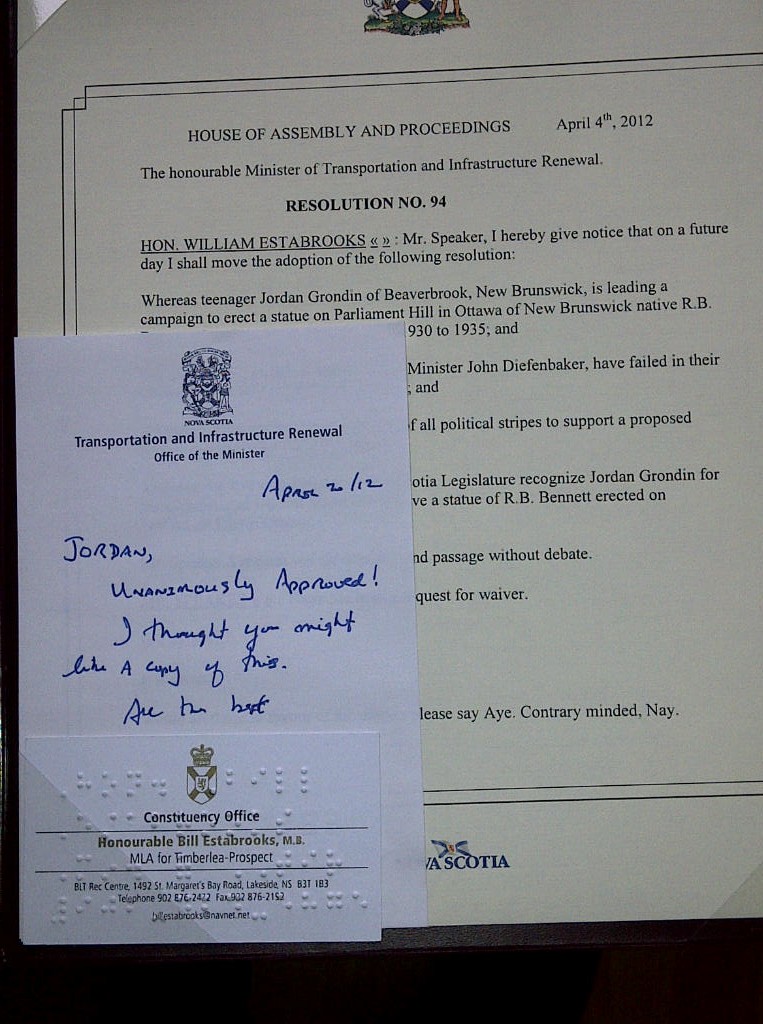 HOUSE OF ASSEMBLY AND PROCEEDINGS April 4th, 2012
The honourable Minister of Transportation and Infrastructure Renewal.
RESOLUTION NO. 94
HON. WILLIAM ESTABROOKS « » : Mr. Speaker, I hereby give notice that on a future
day I shall move the adoption of the following resolution:
Whereas teenager Jordan Grondin of Beaverbrook, New Brunswick, is leading a
campaign to erect a statue on Parliament Hill in Ottawa of New Brunswick native R.B.
930 to 1935; and
Minister John Diefenbaker, have failed in their
; and
f all political stripes to support a proposed
otia Legislature recognize Jordan Grondin for
ve a statue of R.B. Bennett erected on
nd passage without debate.
quest for waiver.
lease say Aye. Contrary minded, Nay.
VA SCOTIA
NOVA SCOTIA
Transportation and Infrastructure Renewal
Office of the Minister
April 20/12
Jordan,
Unanimously Approved!
I thought you might
like A copy of this.
All the best
Constituency Office
Honourable Bill Estabrooks, M.B.
MLA for Timberlea-Prospect
BLT Rec Centre, 1492 St. Margaret's Bay Road, Lakeside, NS B3T 1B3
Telephone 902 876-2422 Fax 902 876-2152
billestabrooks@navnet.net